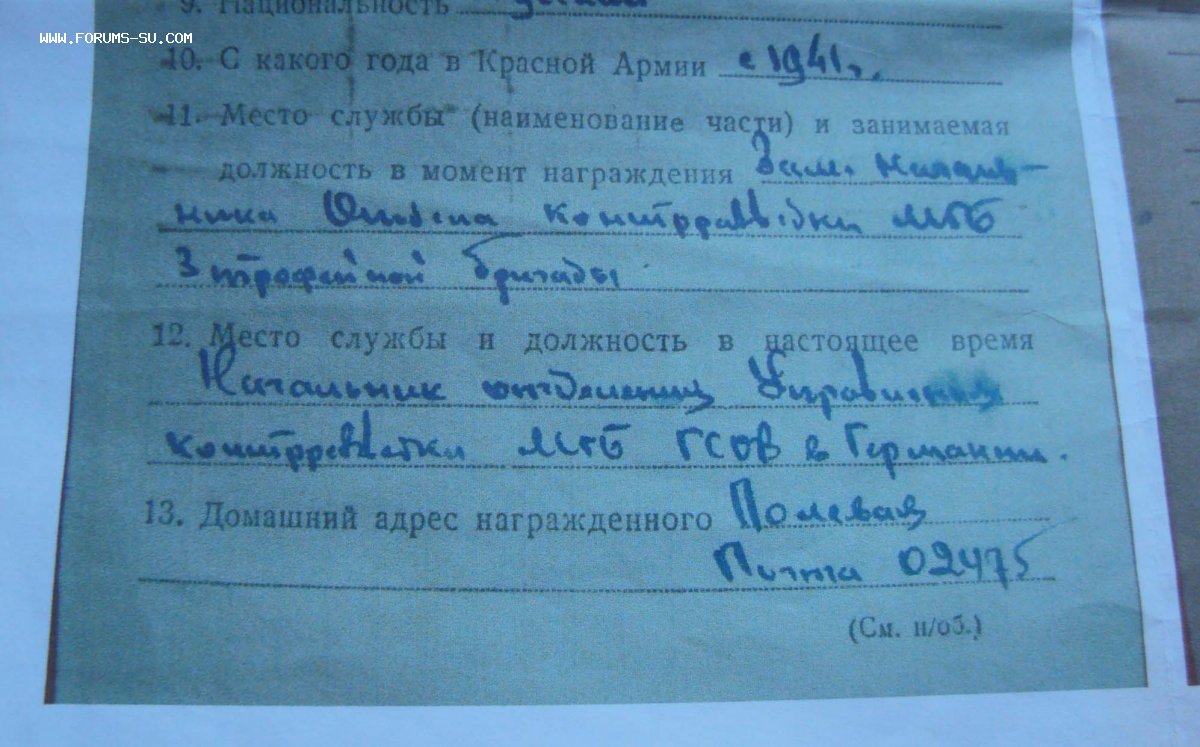 WWW.FORUMS-SU.COM
9. Национальность
10. С какого года в Красной Армии с 1941 г.
11. Место службы (наименование части) и занимаемая
должность в момент награждения Зам. началь-
ника Отдела контрразведки МГБ
3 трофейной бригады
12. Место службы и должность в настоящее время
Начальник отделения Управления
контрразведки МГБ ГСОВ в Германии.
13. Домашний адрес награжденного Полевая
Почта 02475
(См. н/об.)